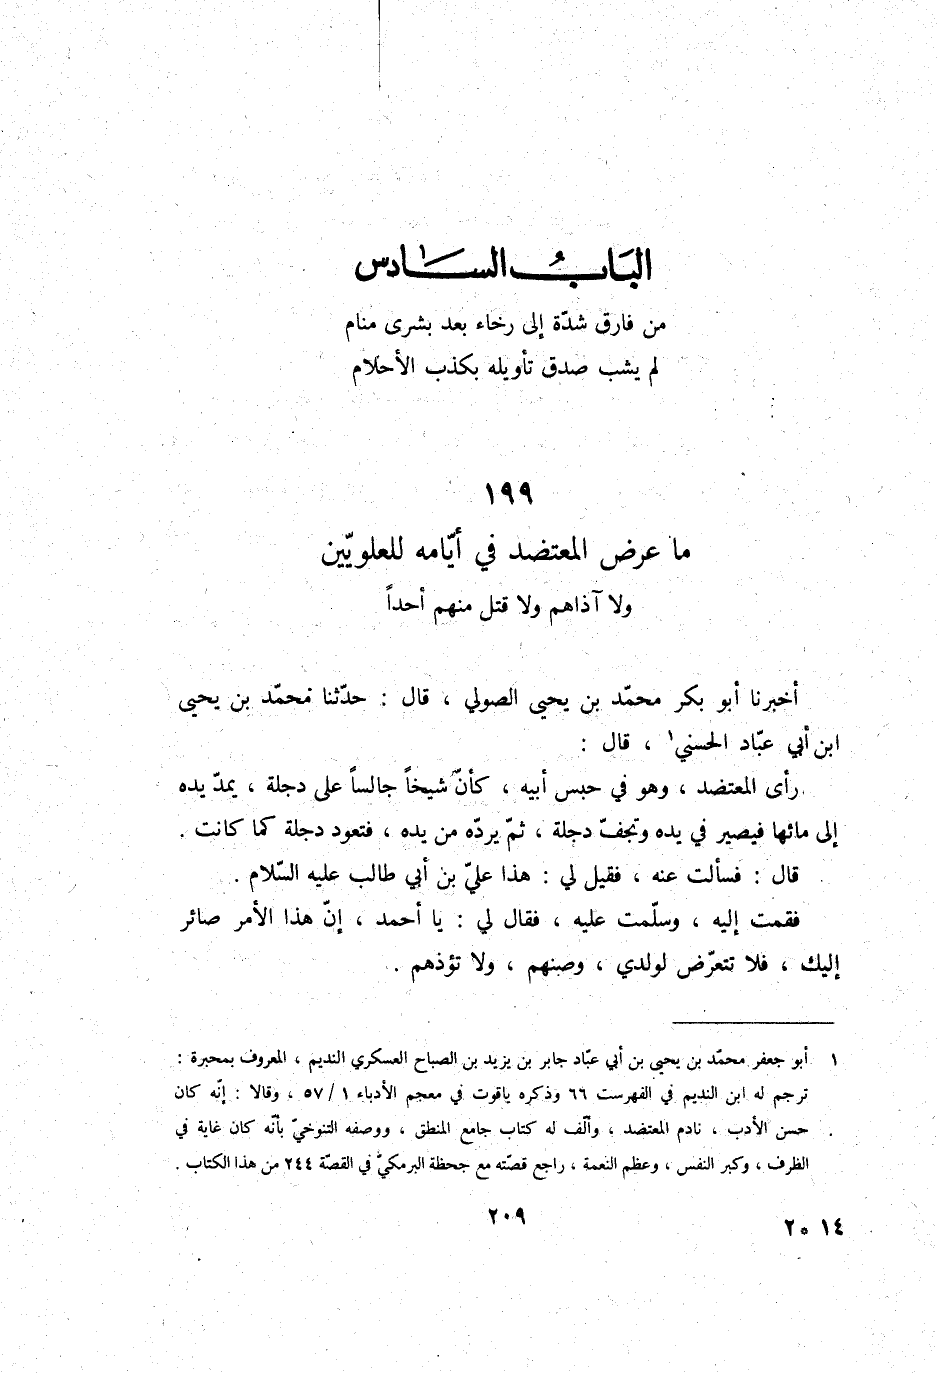 البَابُ السَّادس
من فارق شدّة إلى رخاء بعد بشرى منام
لم يشب صدق تأويله بكذب الأحلام
١٩٩
ما عرض المعتضد في أيّامه للعلويّين
ولا آذاهم ولا قتل منهم أحداً
أخبرنا أبو بكر محمّد بن يحيى الصولي ، قال : حدّثنا محمّد بن يحيى
ابن أبي عبّاد الحسني١ ، قال :
رأى المعتضد ، وهو في حبس أبيه ، كأنّ شيخاً جالساً على دجلة ، يمدّ يده
إلى مائها فيصير في يده وتجفّ دجلة ، ثمّ يردّه من يده ، فتعود دجلة كما كانت .
قال : فسألت عنه ، فقيل لي : هذا عليّ بن أبي طالب عليه السّلام .
فقمت إليه ، وسلّمت عليه ، فقال لي : يا أحمد ، إنّ هذا الأمر صائر
إليك ، فلا تتعرّض لولدي ، وصنهم ، ولا تؤذهم .
١ أبو جعفر محمّد بن يحيى بن أبي عبّاد جابر بن يزيد بن الصباح العسكري النديم ، المعروف بمحبرة :
ترجم له ابن النديم في الفهرست ٦٦ وذكره ياقوت في معجم الأدباء ١ / ٥٧ ، وقالا : إنّه كان
حسن الأدب ، نادم المعتضد ، وألّف له كتاب جامع المنطق ، ووصفه التنوخيّ بأنّه كان غاية في
الظرف ، وكبر النفس ، وعظم النعمة ، راجع قصّته مع جحظة البرمكيّ في القصّة ٢٤٤ من هذا الكتاب .
٢٠٩
١٤ * ٢